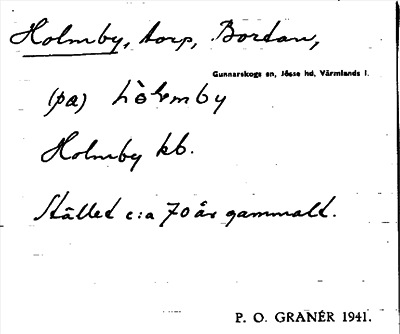 Holmby, torp, Bortan,
Gunnarskogs sn, Jösse hd, Värmlands l.
(pa)
Holmby kb.
Stället c:a 70 år gammalt.
P. O. GRANÉR 1941.